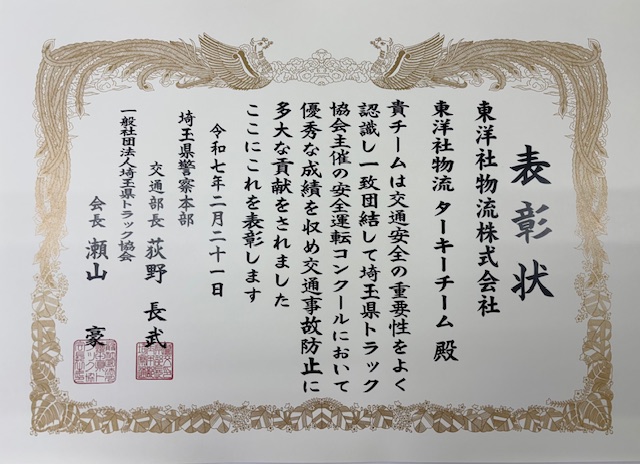 表彰状
東洋社物流株式会社
東洋社物流 ターキーチーム 殿
貴チームは交通安全の重要性をよく
認識し一致団結して埼玉県トラック
協会主催の安全運転コンクールにおいて
優秀な成績を収め交通事故防止に
多大な貢献をされました
ここにこれを表彰します
令和七年二月二十一日
埼玉県警察本部
交通部長 荻野 長武
一般社団法人埼玉県トラック協会
会長 瀬山 豪